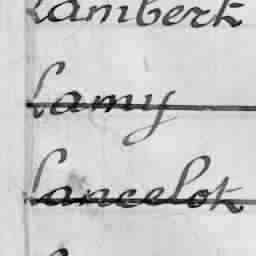 Lambert
Lamy
Lancelot